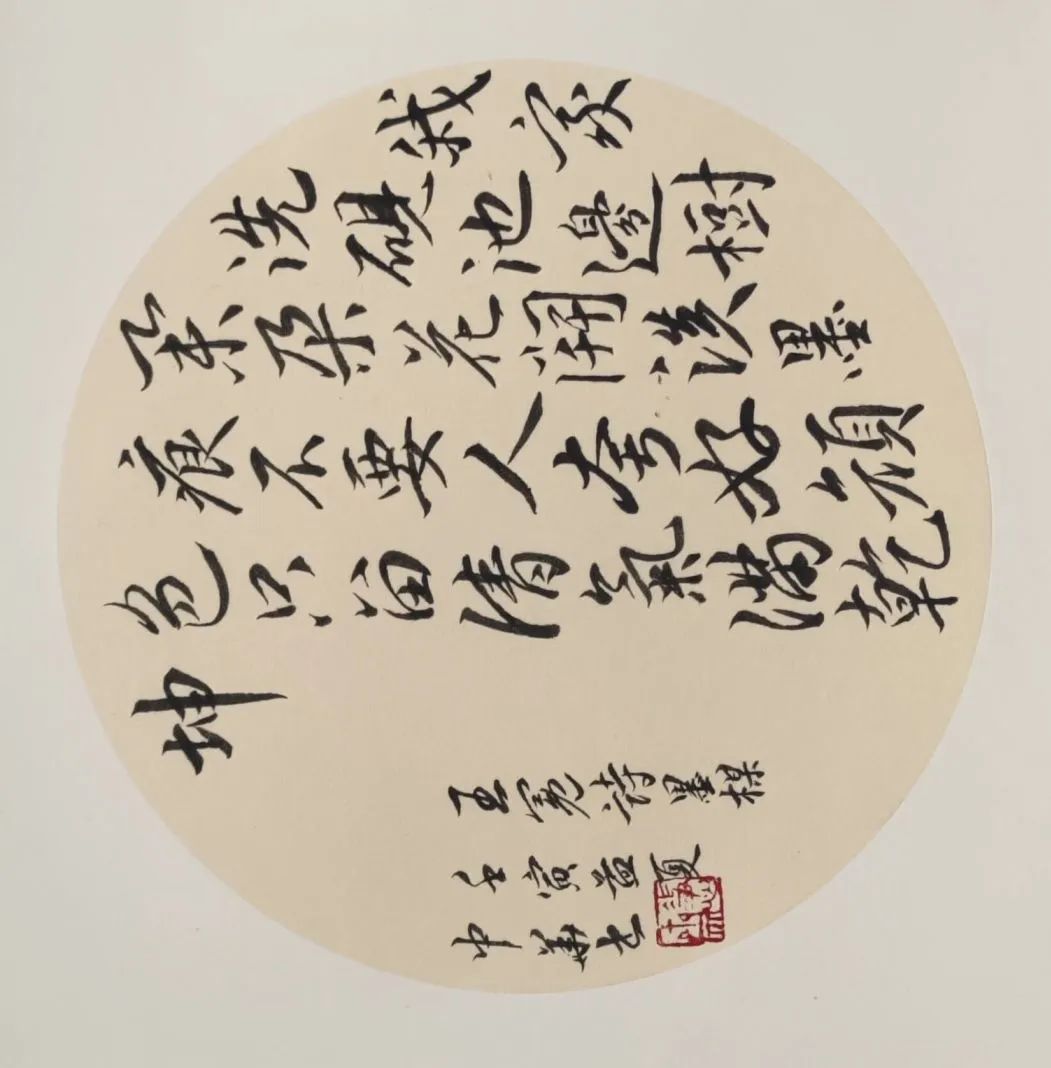 我家
洗硯池邊樹
朵朵花開淡墨
痕不要人夸好顏
色只留清氣滿乾
坤
王冕詩墨梅
壬寅孟夏
中華